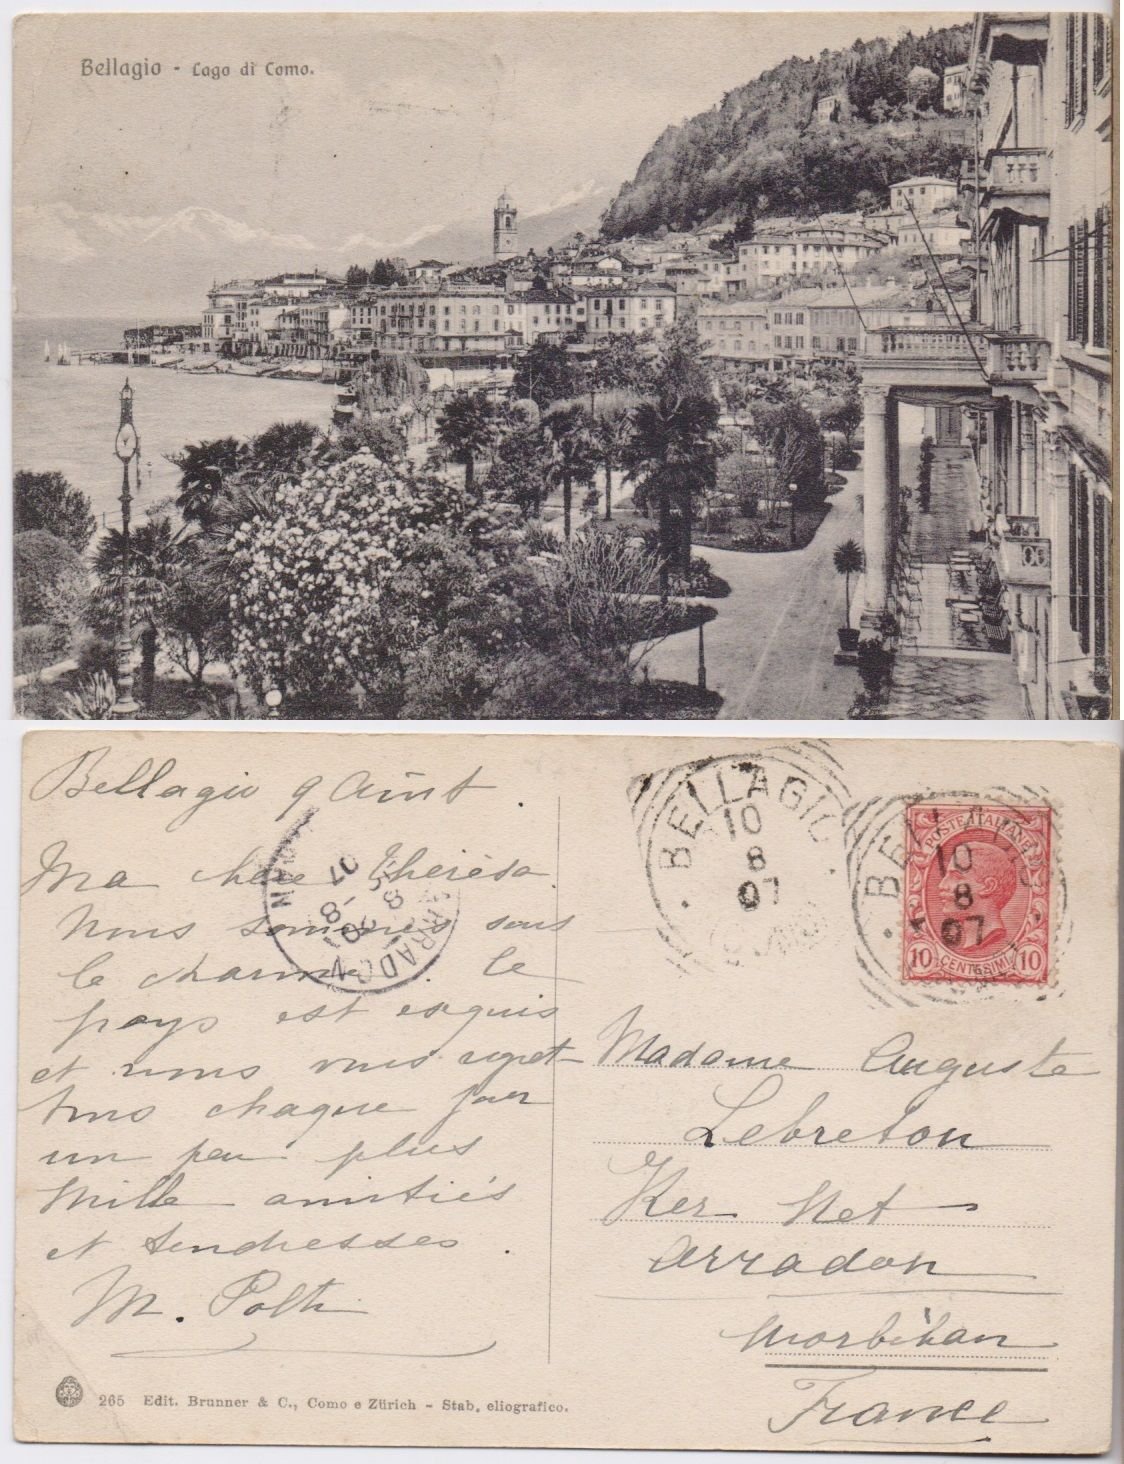 Bellagio - Lago di Como.
Bellagio 9 Aout.
Ma chere Thérèsa.
Nous sommes sous
le charme. le
pays est exquis
et nous vous regret-
tons chaque jour
un peu plus
Mille amitiés
et tendresses.
M. Polti
265 Edit. Brunner & C., Como e Zürich - Stab. eliografico.
ARRADON
8-8
07
BELLAGIO
10
8
07
BELLAGIO
10
8
07
POSTE ITALIANE
10 CENTESIMI 10
Madame Auguste
Lebreton
Ker Net
Arradon
Morbihan
France